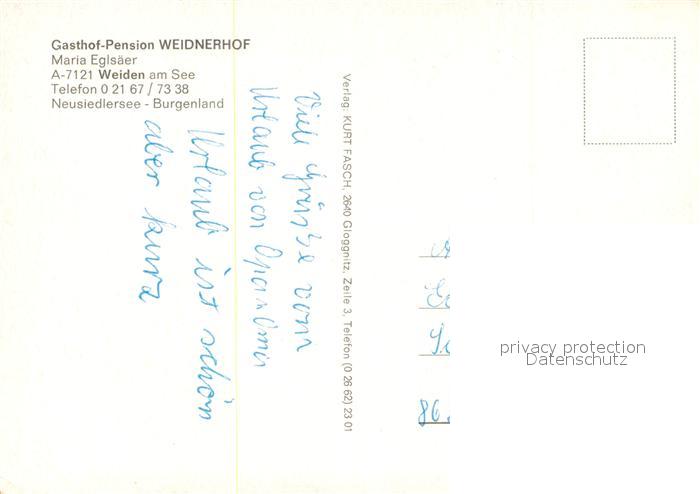 Gasthof-Pension WEIDNERHOF
Maria Eglsäer
A-7121 Weiden am See
Telefon 0 21 67 / 73 38
Neusiedlersee - Burgenland
Viele Grüsse vom
Urlaub von Opa u. Oma
Urlaub ist schön
aber kurz
Verlag: KURT FASCH, 2640 Gloggnitz, Zeile 3, Telefon (0 26 62) 23 01
86.
privacy protection
Datenschutz